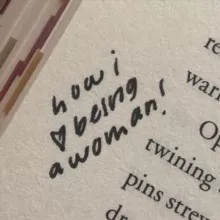 how i
♡ being
a woman!
re
warn
Op
twining
pins strew
dr